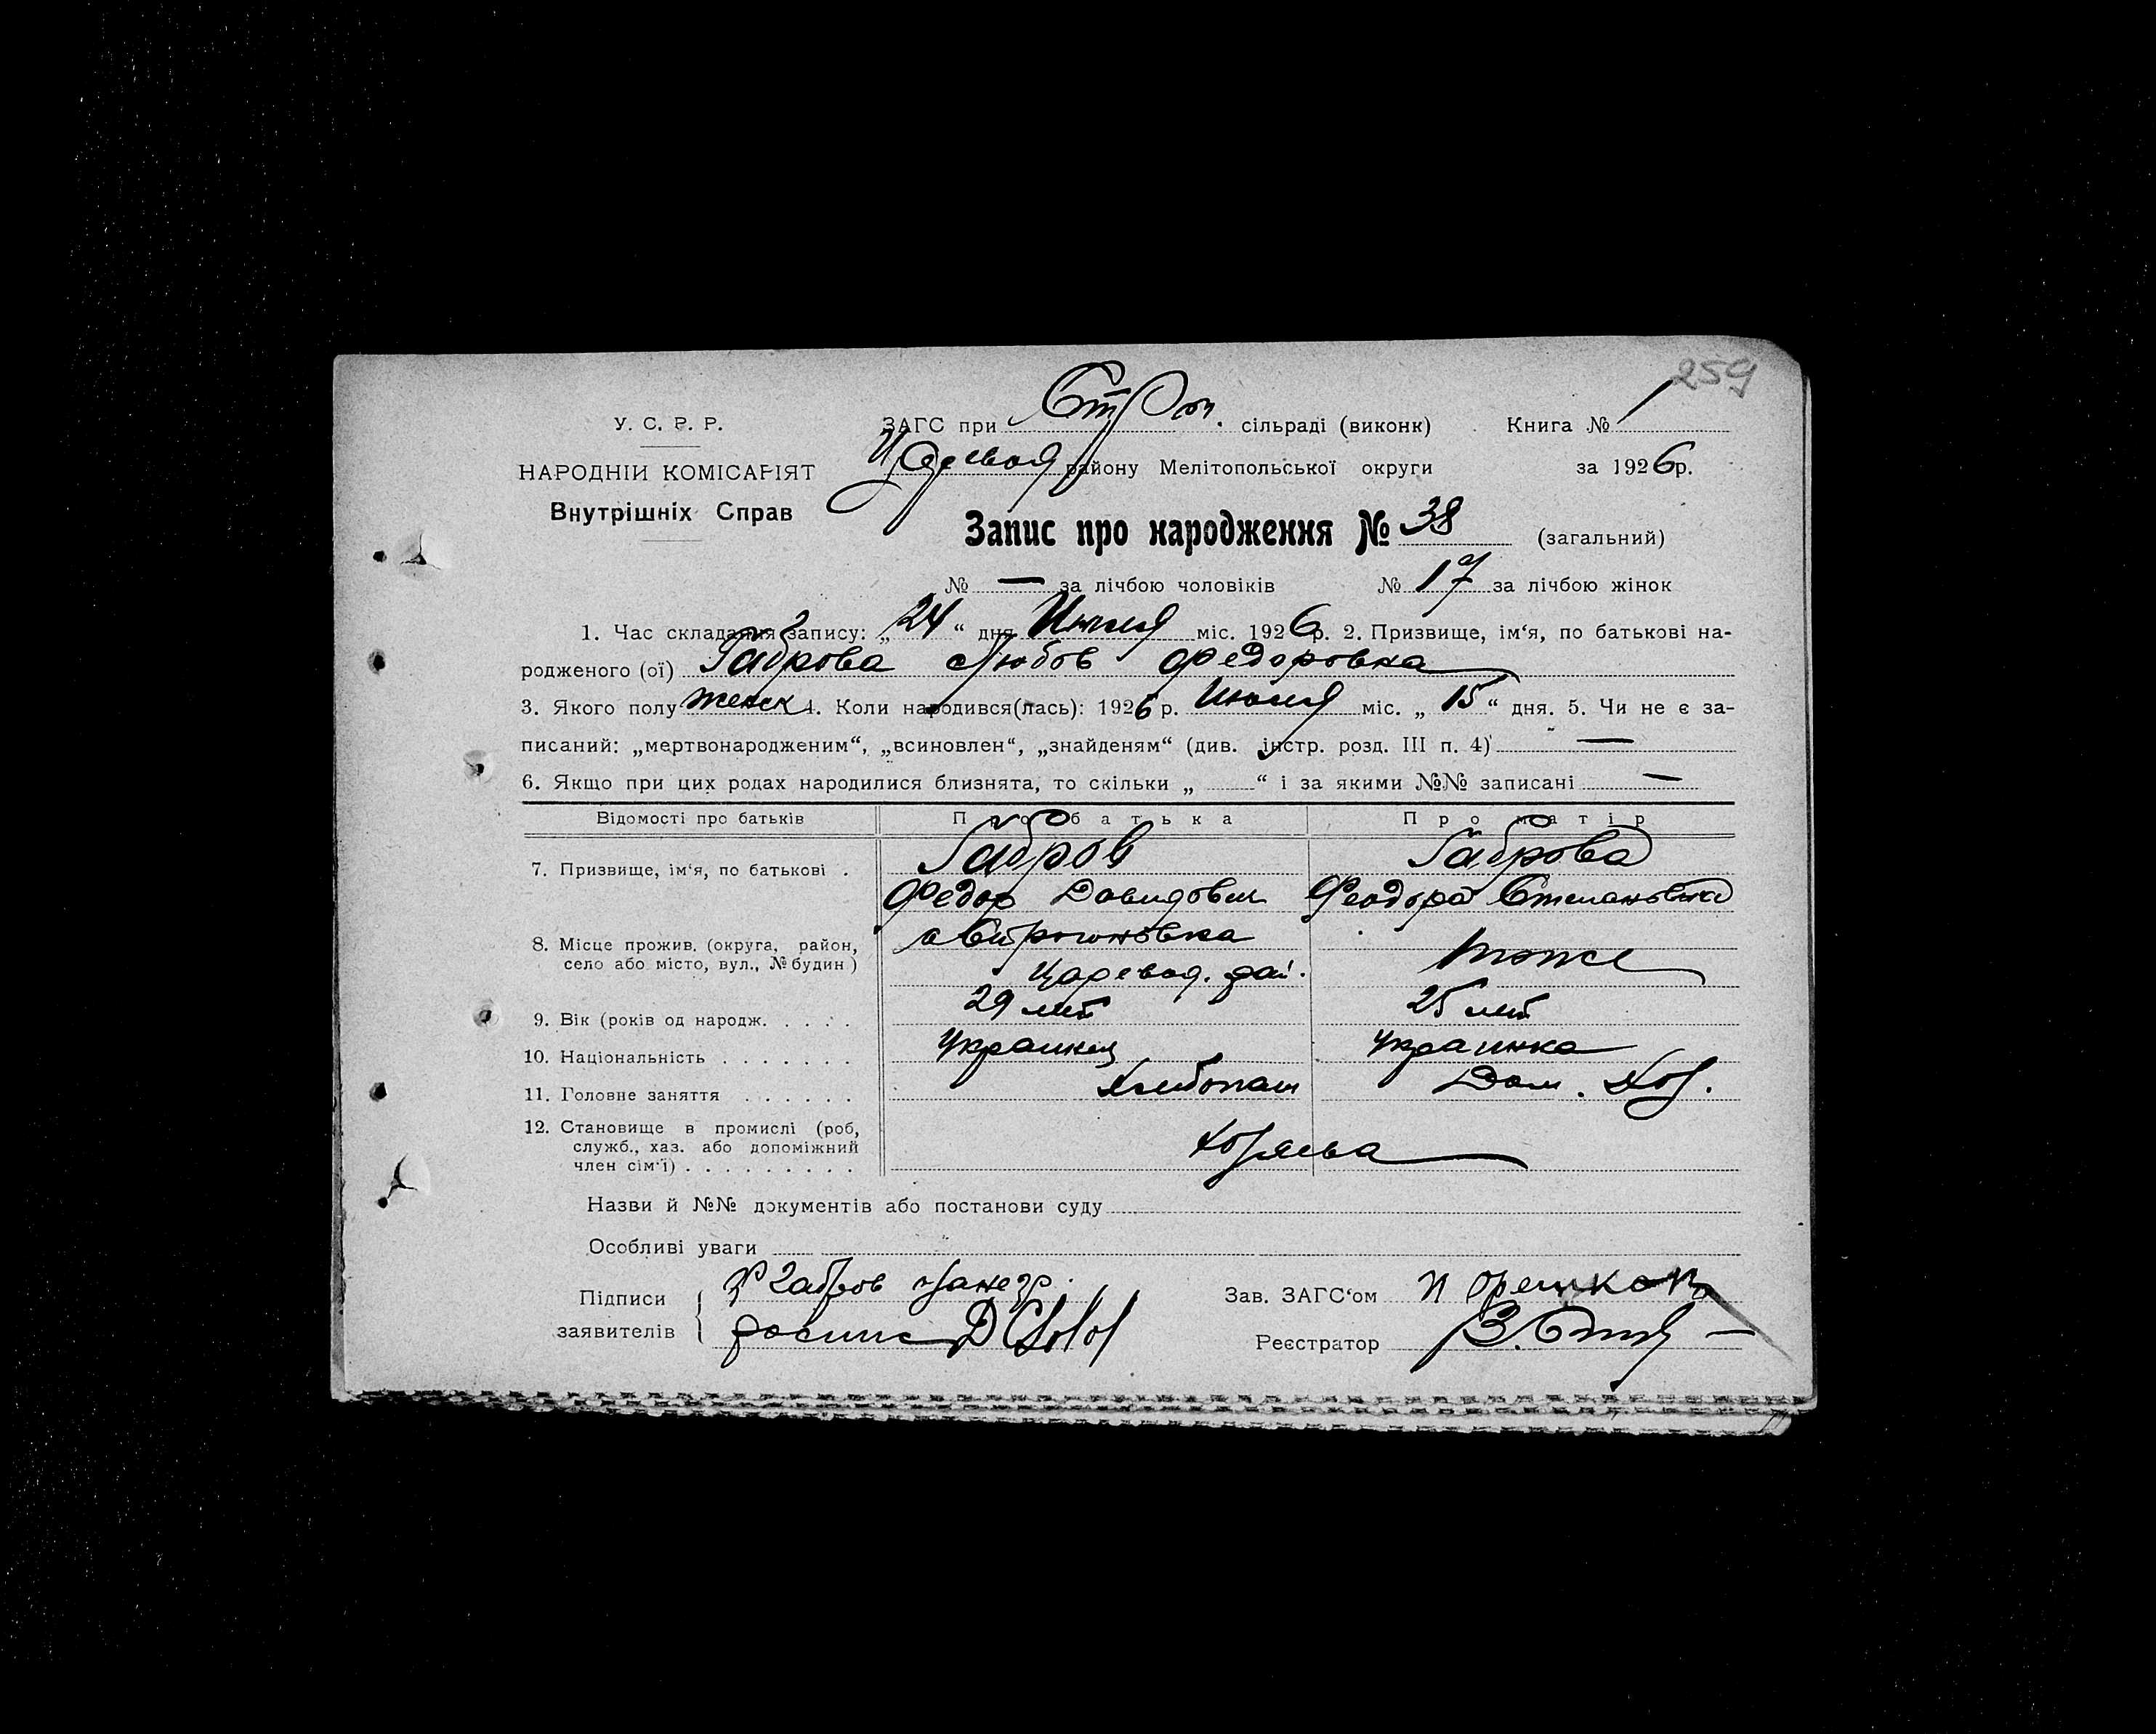 259
У. С. Р. Р.
ЗАГС при Строг. сільраді (виконк) Книга № 1
НАРОДНІЙ КОМІСАРІЯТ
Царевод району Мелітопольської округи за 1926 р.
Внутрішніх Справ
Запис про народження № 38 (загальний)
№ — за лічбою чоловіків № 17 за лічбою жінок
1. Час складання запису: „24“ дня Июля міс. 1926 р. 2. Призвище, ім‘я, по батькові на-
родженого (ої) Габрова Любов Федоровна
3. Якого полу женск 4. Коли народився(лась): 1926 р. Июля міс. „15“ дня. 5. Чи не є за-
писаний: „мертвонародженим“, „всиновлен“, „знайденям“ (див. інстр. розд. III п. 4) —
6. Якщо при цих родах народилися близнята, то скільки „ “ і за якими №№ записані —
Відомості про батьків Про батька Про матір
7. Призвище, ім‘я, по батькові . Габров Габрова
Федор Давидович Феодора Степановна
8. Місце прожив. (округа, район, село або місто, вул., № будин) с Строгоновка тоже
Царевод. рай.
9. Вік (років од народж. . . . . 29 лет 25 лет
10. Національність . . . . . . . Украинец Украинка
11. Головне заняття . . . . . . Хлебопаш Дом. Хоз.
12. Становище в промислі (роб,
служб., хаз. або допоміжний
член сім‘ї) . . . . . . . . . Хозяева
Назви й №№ документів або постанови суду
Особливі уваги
Підписи заявителів Габров
Зав. ЗАГС‘ом
Реєстратор